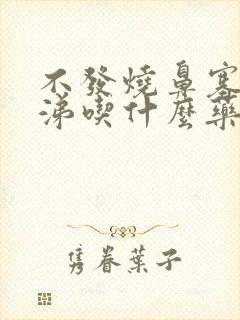 不發燒鼻塞
涕喫什麼藥
隽眷葉子